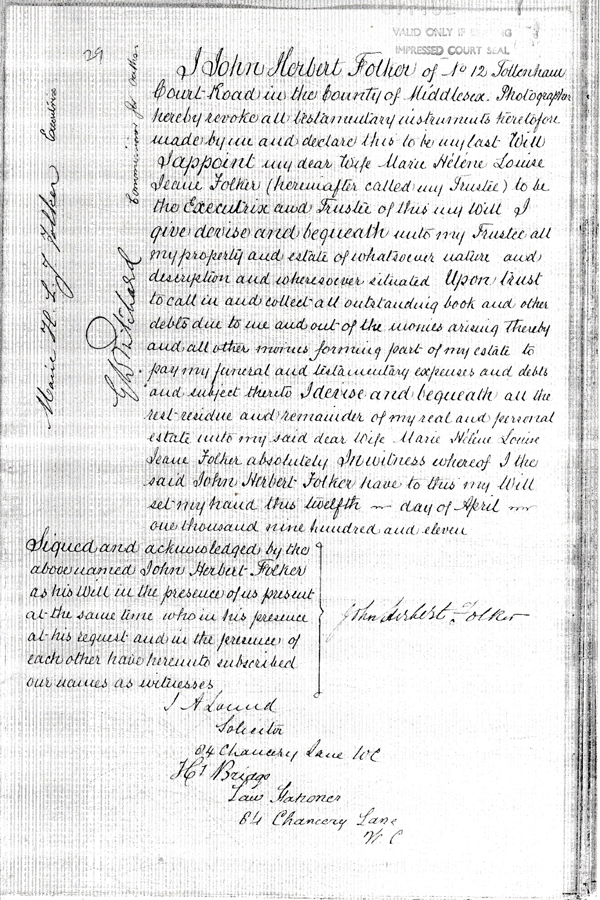 VALID ONLY IF BEARING
IMPRESSED COURT SEAL
29
I John Herbert Folker of No 12 Tottenham
Court Road in the County of Middlesex. Photographer
hereby revoke all testamentary instruments heretofore
made by me and declare this to be my last Will
I appoint my dear Wife Marie Hélène Louise
Jeane Folker (hereinafter called my Trustee) to be
the Executrix and Trustee of this my Will I
give devise and bequeath unto my Trustee all
my property and estate of whatsoever nature and
description and wheresoever situated Upon trust
to call in and collect all outstanding book and other
debts due to me and out of the monies arising thereby
and all other monies forming part of my estate to
pay my funeral and testamentary expenses and debts
and subject thereto I devise and bequeath all the
rest residue and remainder of my real and personal
estate unto my said dear Wife Marie Hélène Louise
Jeane Folker absolutely In witness whereof I the
said John Herbert Folker have to this my Will
set my hand this twelfth day of April
one thousand nine hundred and eleven
Signed and acknowledged by the
above named John Herbert Folker
as his Will in the presence of us present
at the same time who in his presence
at his request and in the presence of
each other have hereunto subscribed
our names as witnesses
John Herbert Folker
Solicitor
64 Chancery Lane WC
Briggs
Law Stationer
64 Chancery Lane
W C
Marie H. L. J. Folker Executrix
Pritchard
Commissioner for oaths